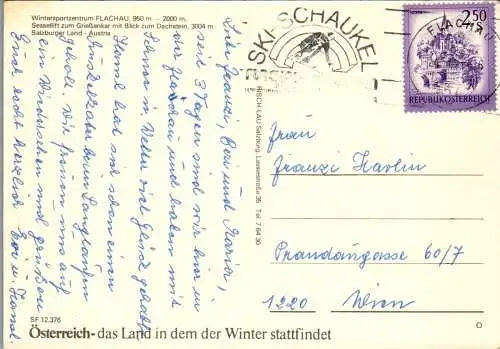 Wintersportzentrum FLACHAU, 950 m — 2000 m.
Sessellift zum Grießankar mit Blick zum Dachstein, 3004 m.
Salzburger Land - Austria
SKI-SCHAUKEL
FLACHAU
2.50
REPUBLIK ÖSTERREICH
RISCH-LAU Salzburg, Lasserstraße 35 Tel 7 64 30
Liebe Franzi, Evi und Maria,
seit 3 Tagen sind wir hier in
Flachau und haben mit
Wetter viel Glück gehabt
Hansl hat sich schon einen
beim Langlaufen
geholt. Wir freuen uns auf
ein Wiedersehen und grüßen
Euch recht herzlich
Evi u. Hansl
Frau
Franzi Havlin
Prandaugasse 60/7
1220 Wien
SF 12.376
Österreich - das Land in dem der Winter stattfindet